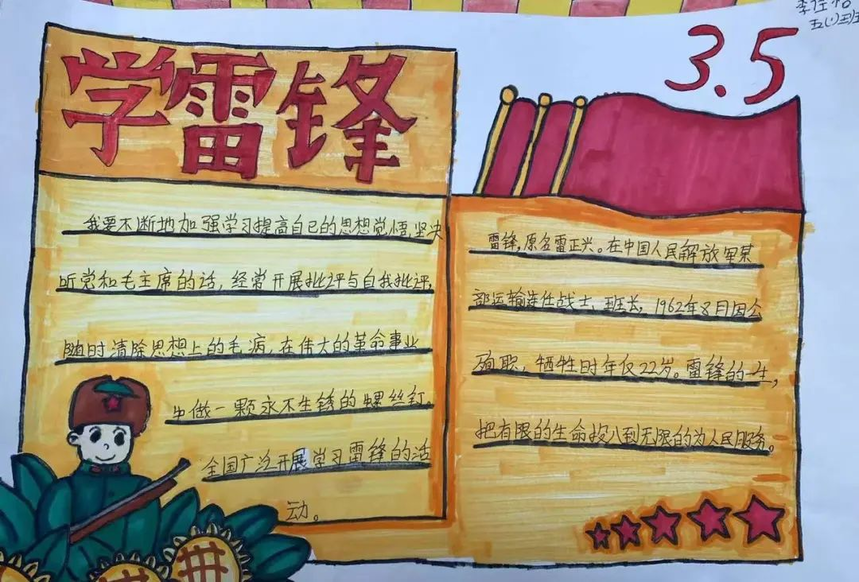 学雷锋
3.5
五(1)班
我要不断地加强学习提高自己的思想觉悟,坚决
听党和毛主席的话,经常开展批评与自我批评,
随时清除思想上的毛病,在伟大的革命事业
中做一颗永不生锈的螺丝钉.
全国广泛开展学习雷锋的活
动。
雷锋,原名雷正兴。在中国人民解放军某
部运输连任战士、班长,1962年8月因公
殉职,牺牲时年仅22岁。雷锋的一生,
把有限的生命投入到无限的为人民服务。